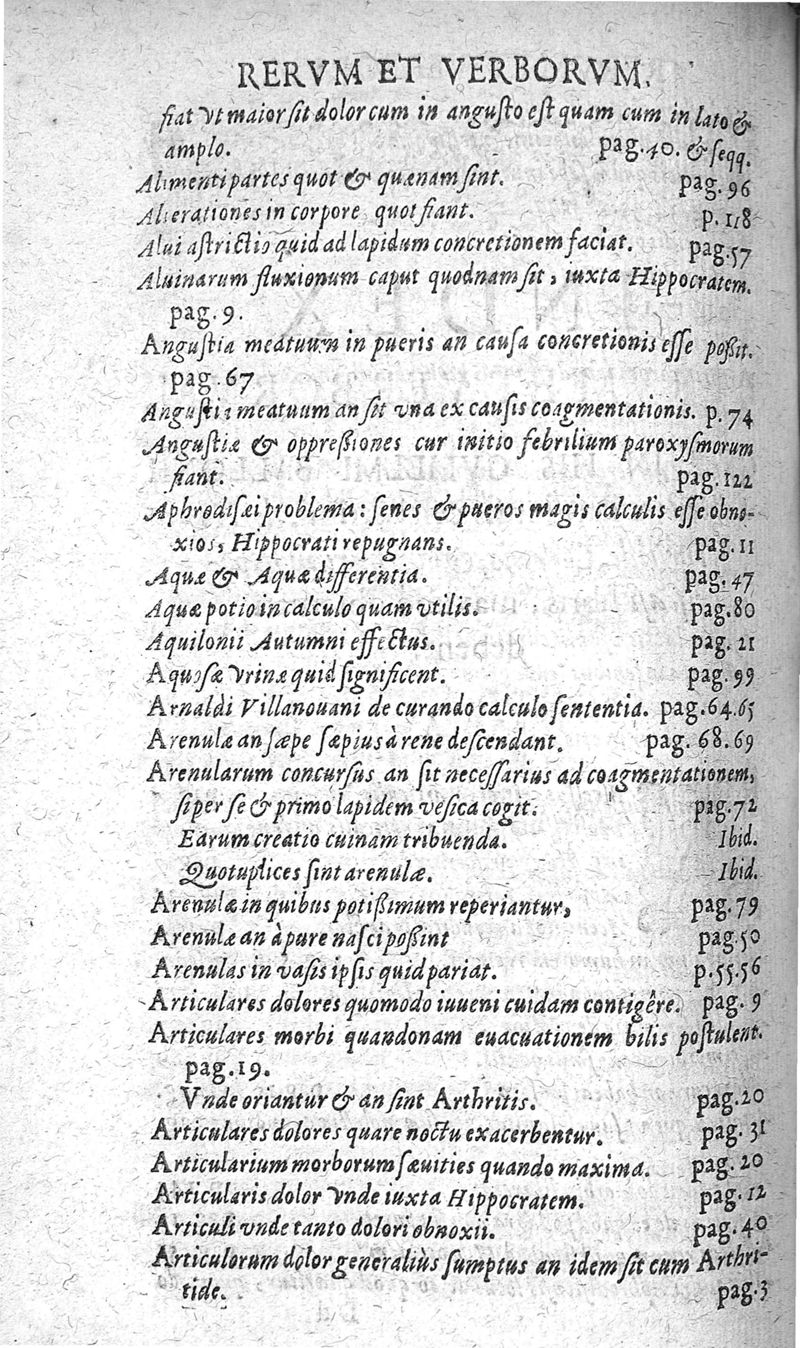 RERVM ET VERBORVM.
fiat vt maior sit dolor cum in angusto est quam cum in lato &
amplo. pag. 40. & seqq.
Alimenti partes quot & quænam sint. pag. 96
Alterationes in corpore quot fiant. p. 118
Alui astrictio quid ad lapidum concretionem faciat. pag. 57
Aluinarum fluxionum caput quodnam sit, iuxta Hippocratem.
pag. 9.
Angustia meatuum in pueris an causa concretionis esse poßit.
pag. 67
Angustia meatuum an sit vna ex causis coagmentationis. p. 74
Angustiæ & oppreßiones cur initio febrilium paroxysmorum
fiant. pag. 122
Aphrodisæi problema: senes & pueros magis calculis esse obno-
xios, Hippocrati repugnans. pag. 11
Aquæ & Aquæ differentia. pag. 47
Aquæ potio in calculo quam vtilis. pag. 80
Aquilonii Autumni effectus. pag. 21
Aquosæ vrinæ quid significent. pag. 99
Arnaldi Villanouani de curando calculo sententia. pag. 64. 65
Arenulæ an sæpe sæpius à rene descendant. pag. 68. 69
Arenularum concursus an sit necessarius ad coagmentationem,
si per se & primo lapidem vesica cogit. pag. 72
Earum creatio cuinam tribuenda. Ibid.
Quotuplices sint arenulæ. Ibid.
Arenulæ in quibus potißimum reperiantur, pag. 79
Arenulæ an à pure nasci poßint pag. 50
Arenulas in vasis ipsis quid pariat. p. 55. 56
Articulares dolores quomodo iuueni cuidam contigêre. pag. 9
Articulares morbi quandonam euacuationem bilis postulent.
pag. 19.
Vnde oriantur & an sint Arthritis. pag. 20
Articulares dolores quare noctu exacerbentur. pag. 31
Articularium morborum sæuities quando maxima. pag. 20
Articularis dolor vnde iuxta Hippocratem. pag. 12
Articuli vnde tanto dolori obnoxii. pag. 40
Articulorum dolor generaliùs sumptus an idem sit cum Arthri-
tide. pag. 3